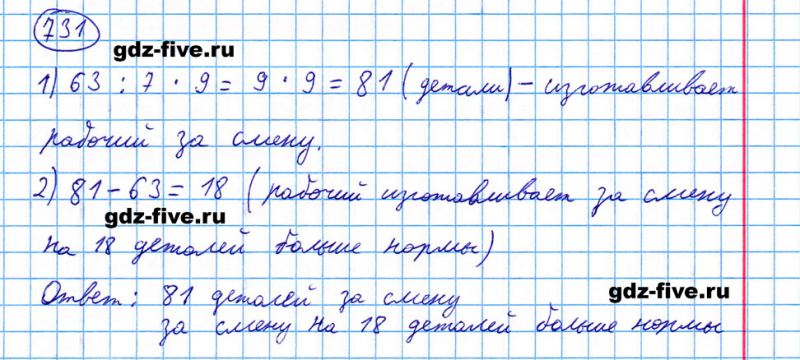 731
gdz-five.ru
1) 63 : 7 · 9 = 9 · 9 = 81 (детали) – изготавливает
рабочий за смену.
2) 81 – 63 = 18 (рабочий изготавливает за смену
gdz-five.ru
на 18 деталей больше нормы)
Ответ: 81 деталей за смену
gdz-five.ru
за смену на 18 деталей больше нормы